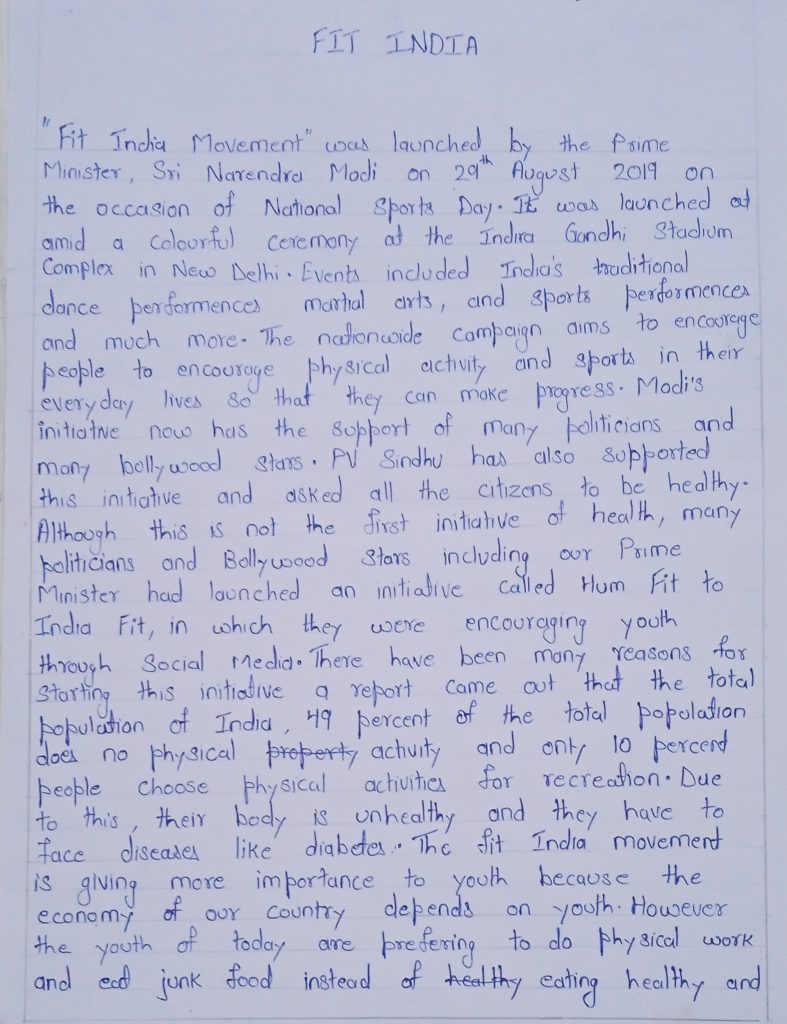 FIT INDIA
"Fit India Movement" was launched by the Prime
Minister, Sri Narendra Modi on 29th August 2019 on
the occasion of National Sports Day. It was launched at
amid a colourful ceremony at the Indira Gandhi Stadium
Complex in New Delhi. Events included India's traditional
dance performences martial arts, and sports performences
and much more. The nationwide campaign aims to encourage
people to encourage physical activity and sports in their
everyday lives so that they can make progress. Modi's
initiative now has the support of many politicians and
many bollywood stars. PV Sindhu has also supported
this initiative and asked all the citizens to be healthy.
Although this is not the first initiative of health, many
politicians and Bollywood Stars including our Prime
Minister had launched an initiative called Hum Fit to
India Fit, in which they were encouraging youth
through Social Media. There have been many reasons for
Starting this initiative a report came out that the total
population of India, 49 percent of the total population
does no physical property activity and only 10 percent
people choose physical activities for recreation. Due
to this, their body is unhealthy and they have to
face diseases like diabetes. The fit India movement
is giving more importance to youth because the
economy of our country depends on youth. However
the youth of today are prefering to do physical work
and eat junk food instead of healthy eating healthy and